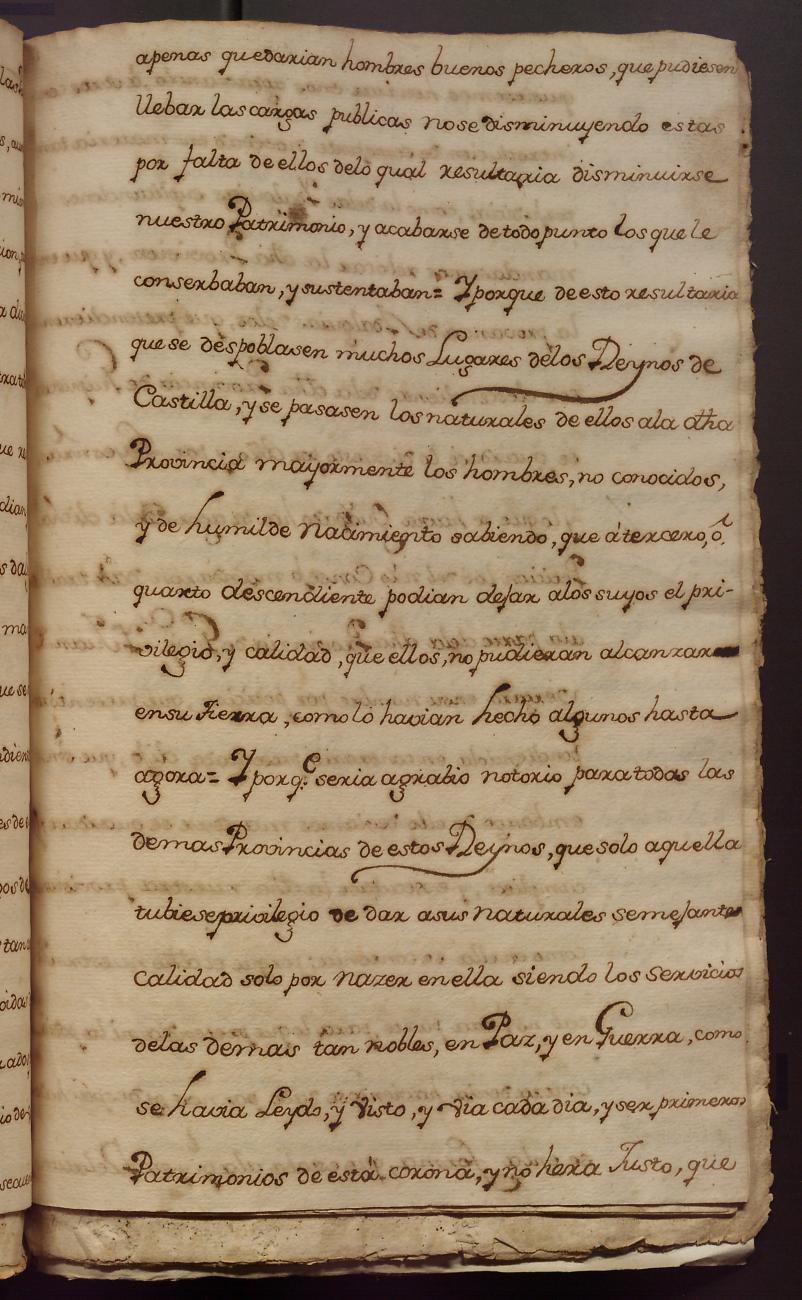 apenas quedarian hombres buenos pecheros, que pudiesen
llebar las cargas publicas no se disminuyendo estas
por falta de ellos delo qual resultaria disminuirse
nuestro Patrimonio, y acabarse de todo punto los que le
conserbaban, y sustentaban= Y porque de esto resultaria
que se despoblasen muchos Lugares delos Reynos de
Castilla, y se pasasen los naturales de ellos ala dha
Provincia mayormente los hombres, no conocidos,
y de humilde Nacimiento sabiendo, que á tercero, ó,
quarto descendiente podian dejar alos suyos el pri-
vilegio, y calidad, que ellos, no pudieran alcanzar
ensu tierra, como lo havian hecho algunos hasta
agora= Y porq.e seria agrabio notorio para todas las
demas Provincias de estos Reynos, que solo aquella
tubiese privilegio de dar asus Naturales semejante
calidad solo por nazer en ella siendo los servicios
delas demas tan nobles, en Paz, y en Guerra, como
se havia Leydo, y visto, y via cada dia, y ser primeros
Patrimonios de está corona, y no hera Justo, que